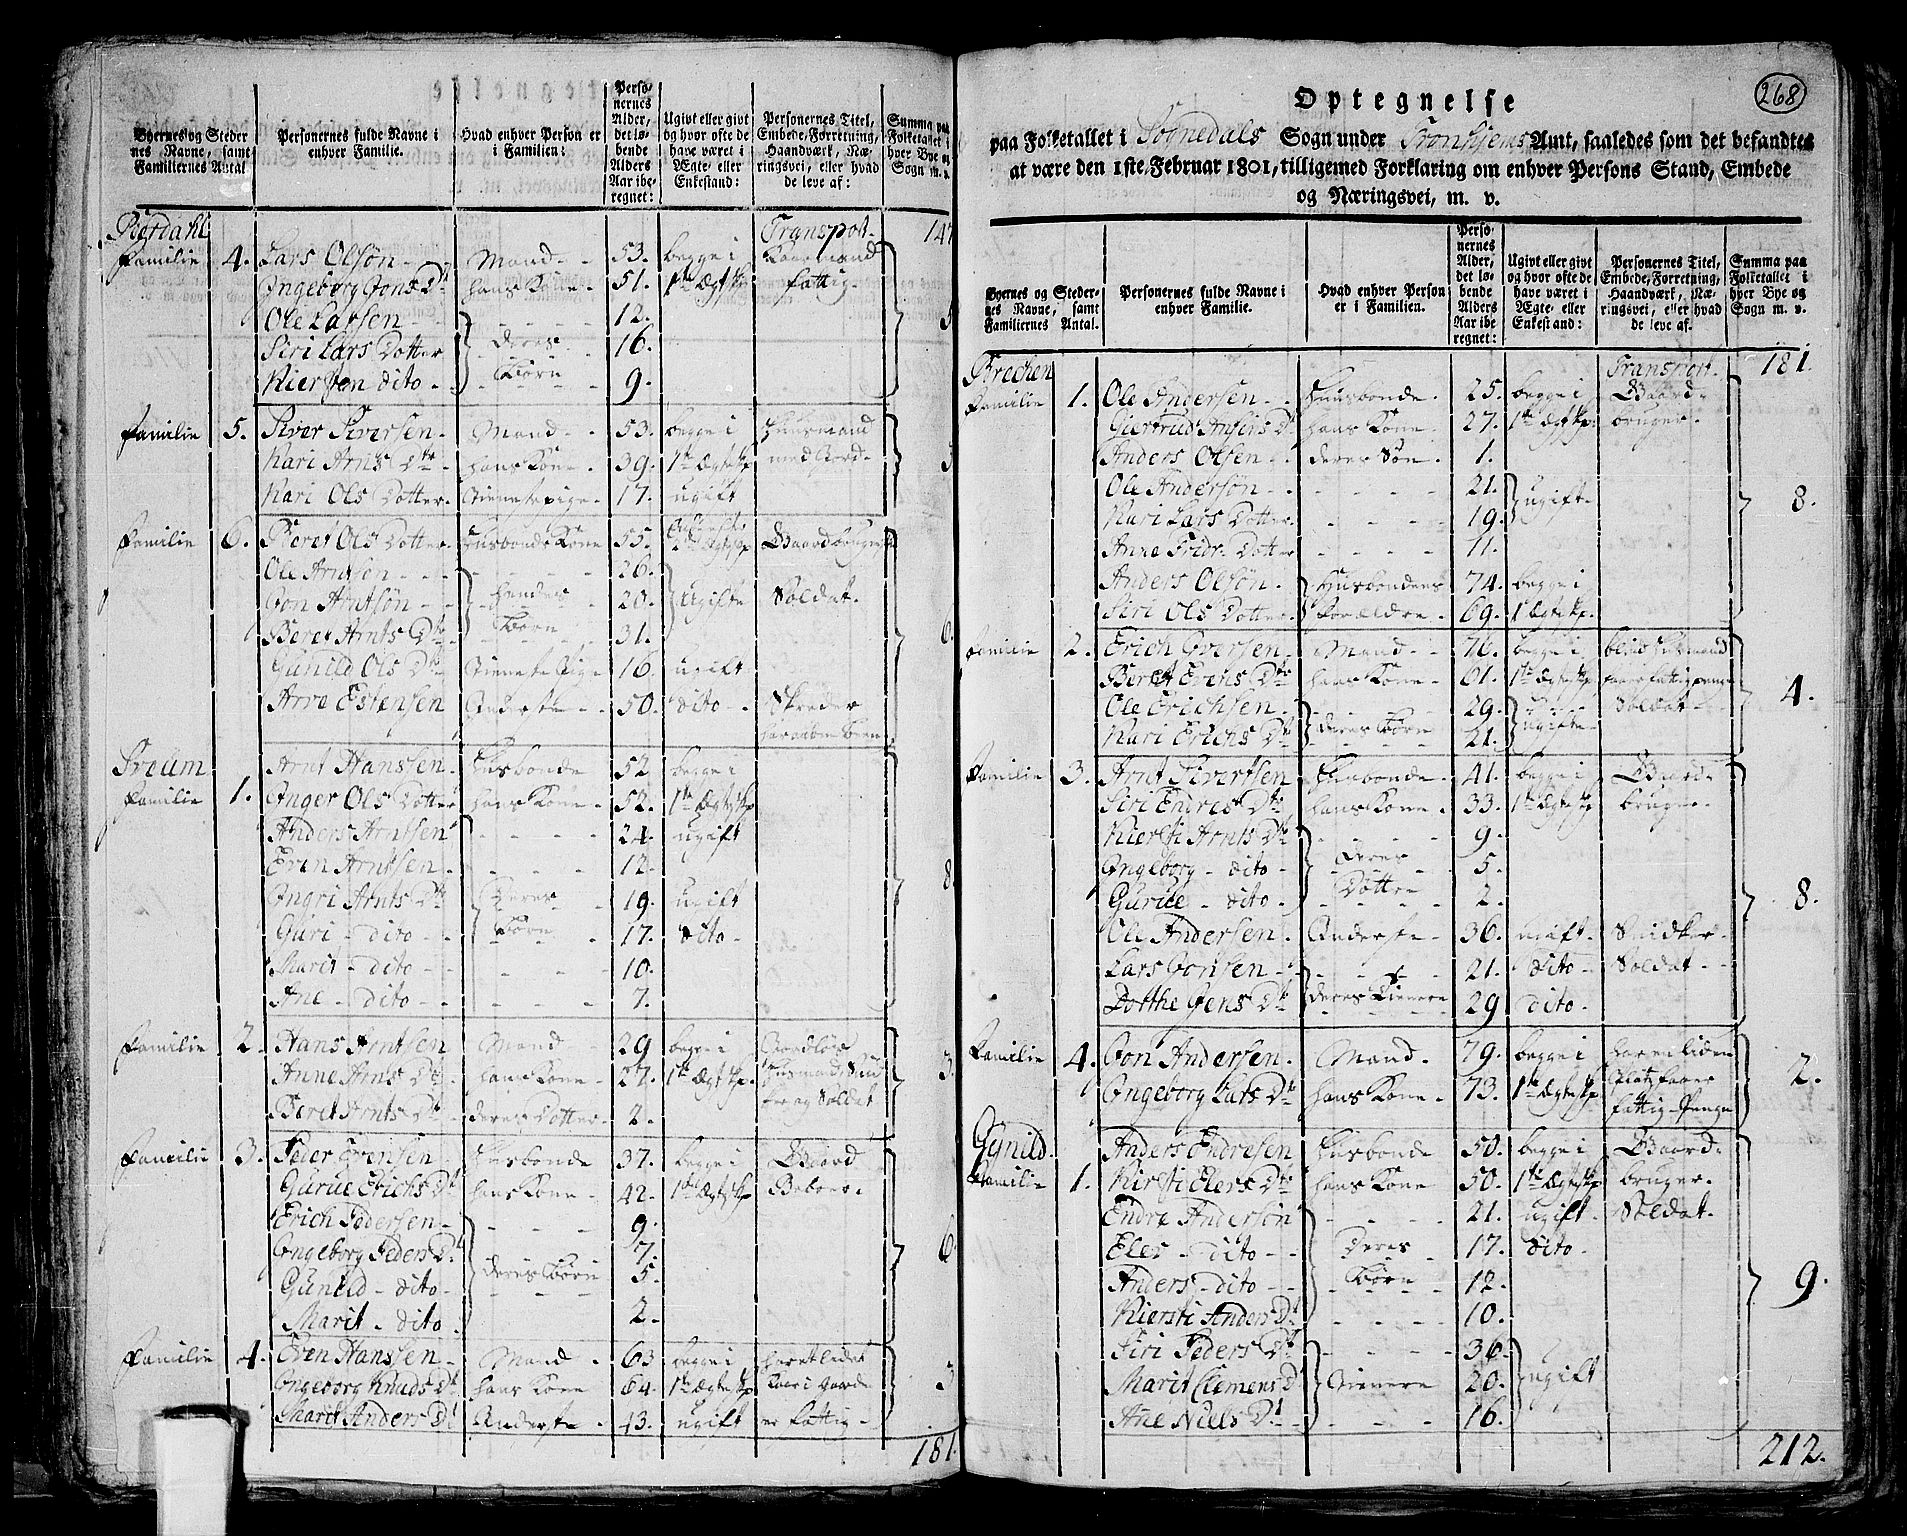 Byernes og Steder
nes Navne, samt
Familiernes Antal
Personernes fulde Navne i
enhver Familie.
Hvad enhver Person er
i Familien:
Perso-
nernes
Alder,
det lø-
bende
Alders
Aar ibe-
regnet:
Ugivt eller givt
og hvor ofte de
have været i
Ægte- eller
Enkestand:
Personernes Titel,
Embede, Forretning,
Haandværk, Næ-
ringsvei, eller hvad
de leve af:
Summa paa
Folketallet i
hver Bye og
Sogn m. v.
Transport 147
Familie 4. Lars Olsøn - Mand - 53. begge i
Ingeborg Jons Dt hans Kone - 51. 1te Ægtesk fattig -
Ole Larsen - 12.
Siri Lars Dotter deres 16.
Kiersten dito - Børn 9.
Familie 5. Siver Siversen - Mand - 53. begge i Huusmand
Kari Arns Dtr hans Kone - 39. 1te Ægtesk med Jord -
Kari Ols Dotter - Tienestepige - 17. ugift
Familie 6. Beret Ols Dotter - Husbonds Kone 55. Gaardbruger
Ole Arntsen - - - 26.
Jon Arntsøn - - hendes 20. ugifte Soldat.
Beret Arnts Dtr Børn 31. 6.
Gunild Ols Dtr Tieneste Pige 16. ugift
Estensen Inderste - 50. dito -
Familie 1. Arnt Hanssen - Husbonde 52 begge i
Anger Ols Dotter hans Kone - 52. 1te Ægtesk
Anders Arntsen - - - 24. ugift
Even Arntsen - - - 12.
Ingri Arnts Dtr Deres 19. ugift 8.
Guri - dito - Børn 17. dito -
Marit - dito - - - 10.
Ane - dito - - - 7.
Familie 2. Hans Arntsen Mand - 29 begge i Jordløs
Anne Arns Dtr hans Kone - 27. 1te Ægtesk. 3.
Beret Arnts Dtr - deres Dotter - 2. og Soldat
Familie 3. Peder Evensen - Husbonde 37. begge i Gaard
Gurue Erichs Dt hans Kone - 42. 1te Ægtesk Beboer -
Erich Pedersen - - - 9.
Ingeborg Peders Dt 7. 6.
Gunild - dito - deres Børn 5.
Marit - dito 2.
Familie 4. Even Hanssen - Mand - 63 begge i
Ingeborg Knuds Dt hans Kone - 64. 1te Ægtesk
Marit Anders Dt Inderste - 43. ugift er fattig -
181.
268
Optegnelse
paa Folketallet i Sognedals Sogn under Tronhjems Amt, saaledes som det befandtes
at være den 1ste Februar 1801, tilligemed Forklaring om enhver Persons Stand, Embede
og Næringsvei, m. v.
Byernes og Steder-
nes Navne, samt
Familiernes Antal.
Personernes fulde Navne i
enhver Familie.
Hvad enhver Person
er i Familien.
Perso-
nernes
Alder,
det lø-
bende
Alders
Aar ibe-
regnet:
Ugivt eller givt
og hvor ofte de
have været i
Ægte- eller
Enkestand:
Personernes Titel,
Embede, Forretning,
Haandværk, Næ-
ringsvei, eller hvad
de leve af.
Summa paa
Folketallet i
hver Bye og
Sogn m. v.
Transport. 181.
Familie 1. Ole Andersen - - Huusbonde - 25. begge i Gaard-
Giertrud Dt hans Kone - 27. 1te Ægtsk. bruger -
Anders Olsen - deres Søn - 1.
Ole Andersøn - - - 21.
Kari Lars Dotter - - 19. ugift - 8.
Anne Fridr - Dotter - - 11.
Anders Olsøn - Husbondens 74. begge i
Siri Ols Dotter Forældre - 69. 1te Ægtesk.
Familie 2. Erich - Mand - - 76. begge i
Beret Dtr hans Kone - 61. 1te Ægtesk
Ole Erichsen - 29. Soldat - 4.
Kari Erichs Dtr deres Børn 21. ugifte -
Familie 3. Arnt Sivertsen Husbonde - 41. begge i Gaard-
Siri Endres Dtr hans Kone - 33. 1te Ægtesk bruger -
Kiersti Arnts Dt - - - 9.
Ingeborg - dito - Deres 5.
Gurue - dito - Døttre 2. 8.
Ole Andersen - Inderste - 36. ugift - Snidker -
Lars Jonsen - - - 21. dito - Soldat -
Dorthe Jens Dtr deres Tienere 29 dito -
Familie 4. Jon Andersen - Mand - 79. begge i har en liden
Ingeborg Lars Dt hans Kone - 73. 1te Ægtesk Platz faaer 2.
fattig-Penge
Gynild Anders Endresen Husbonde 50. begge i Gaard-
Familie 1. Kirsti Elers Dtr hans Kone 50. 1te Ægtesk bruger.
Endre Andersøn - - - 21. ugift - Soldat -
Eler - dito - - Deres 17. dito -
Anders - dito - - Børn 12. 9.
Kiersti Anders Dt 10.
Siri Peders Dtr - - - 36.
Marit Clemens D Tienere 20. ugift
Ane Niels Dt - - - 16.
212.